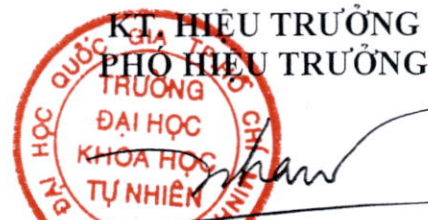 KT. HIỆU TRƯỞNG
PHÓ HIỆU TRƯỞNG
ĐẠI HỌC QUỐC GIA TP HỒ CHÍ MINH
TRƯỜNG
ĐẠI HỌC
KHOA HỌC
TỰ NHIÊN